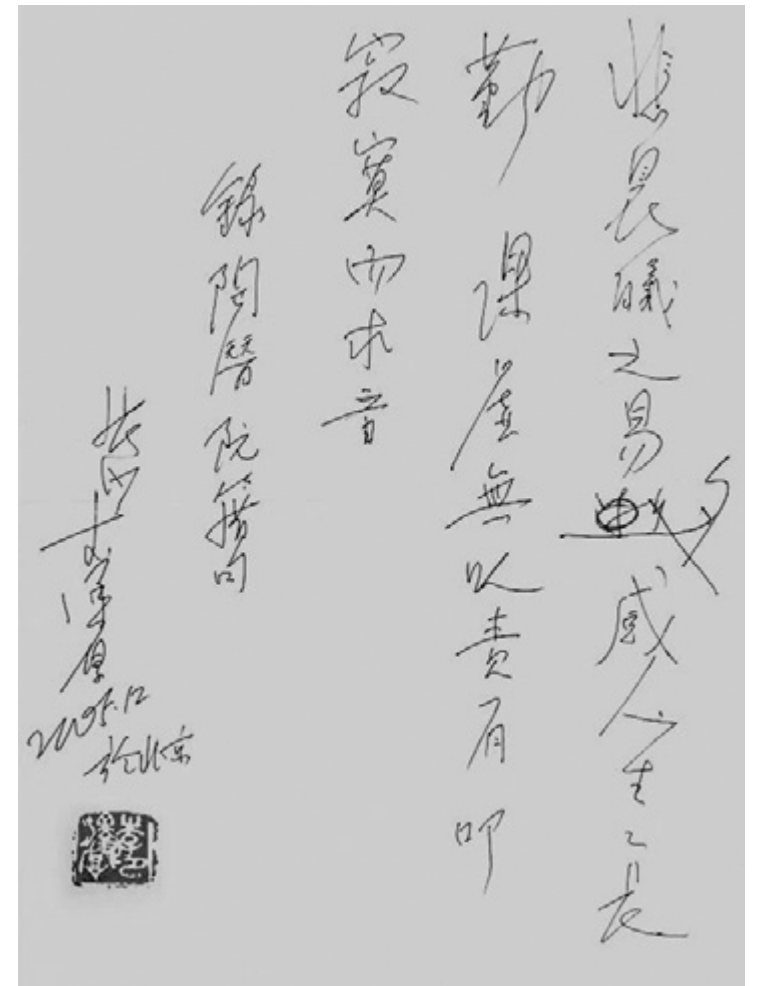 悲晨曦之易夕感人生之長
勤 課虛無以責有叩
寂寞而求音
錄陶潛阮籍句
長沙李澤厚
2005.12
於北京